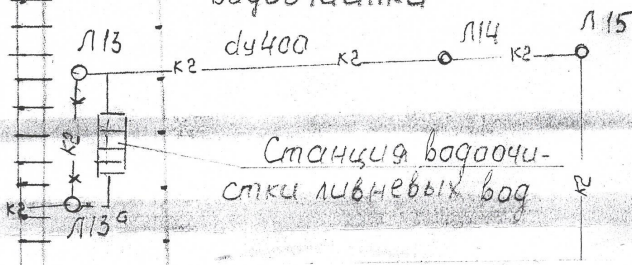 Л13
dу400
Л14
Л15
к2
к2
к2
к2
Станция водоочи-
стки ливневых вод
к2
Л13а